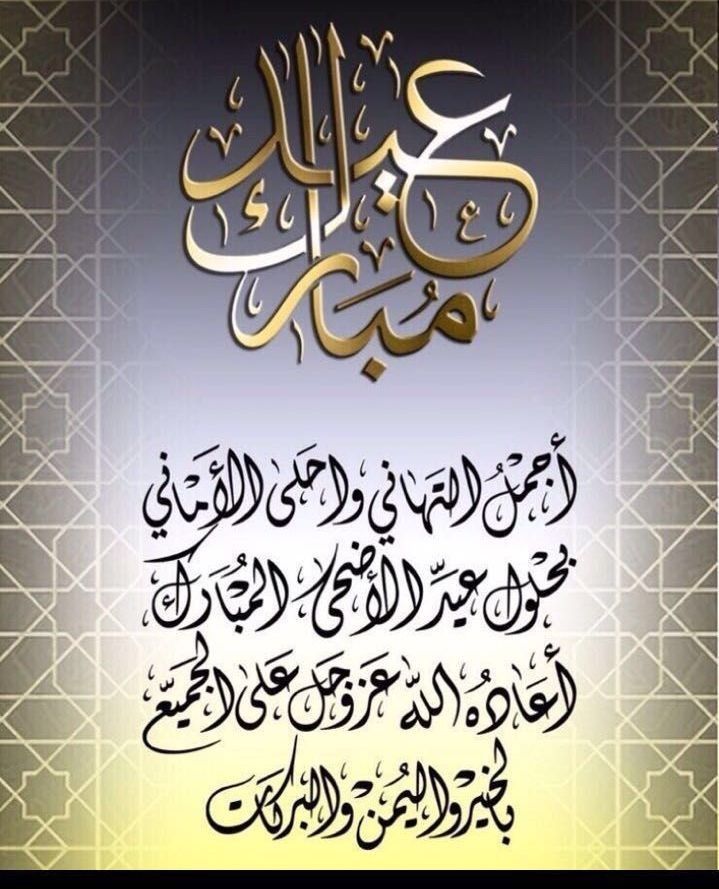 عيد
مبارك
أجمل التهاني واحلى الأماني
بحلول عيد الأضحى المبارك
أعاده الله عز وجل على الجميع
بالخير واليمن والبركات